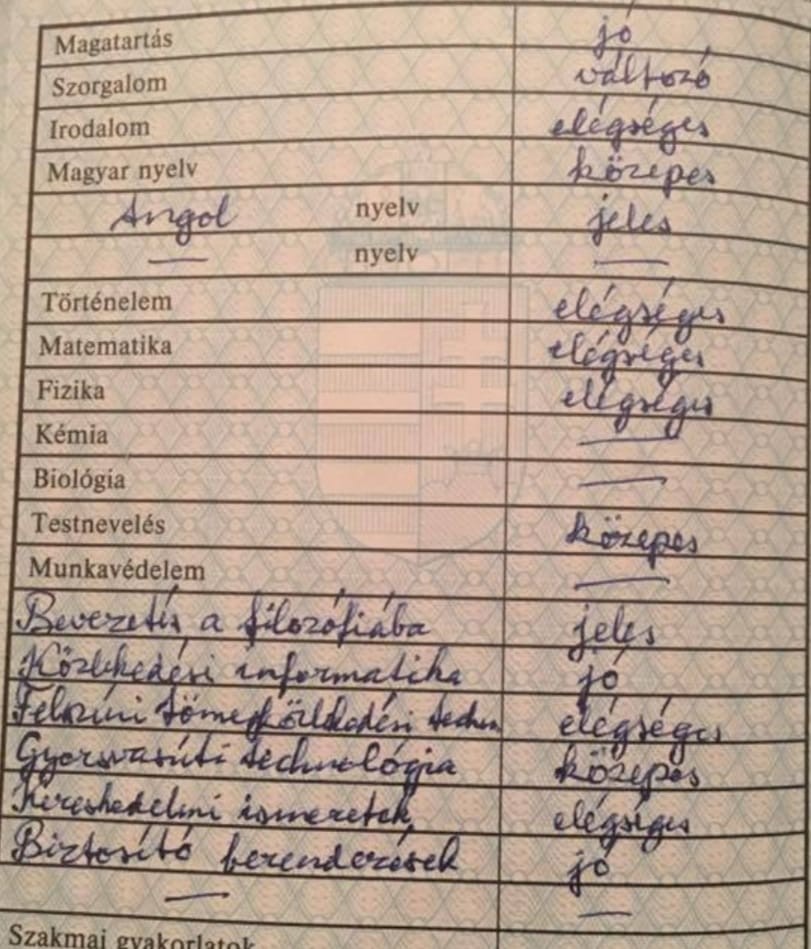 Magatartás jó
Szorgalom változó
Irodalom elégséges
Magyar nyelv közepes
Angol nyelv jeles
— nyelv —
Történelem elégséges
Matematika elégséges
Fizika elégséges
Kémia —
Biológia —
Testnevelés közepes
Munkavédelem —
Bevezetés a filozófiába jeles
Közlekedési informatika jó
Felszíni tömegközlekedési techn elégséges
Gyorsvasúti technológia közepes
Kereskedelmi ismeretek elégséges
Biztosító berendezések jó
— —
Szakmai gyakorlatok